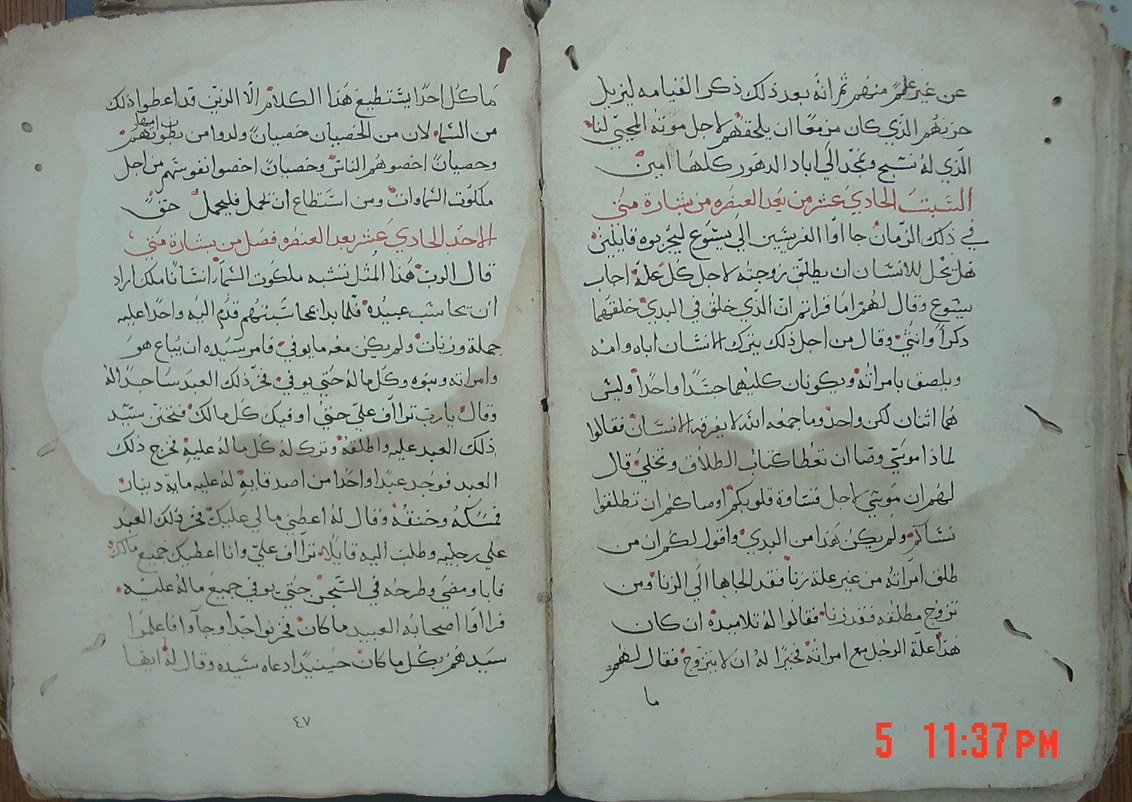 عن غير علم منهم ثم انه بعد ذلك ذكر القيامه ليزيل
حزنهم الذي كان مزمعا ان يلحقهم لاجل موته المحيي لنا
الذي له نسبح ونمجد الي اباد الدهور كلها امين
السبت الحادي عشر من بعد العنصره من بشارة متي
في ذلك الزمان جا اوا الفريسين الي يسوع ليجربوه قايلين
هل يحل للانسان ان يطلق زوجته لاجل كل علة اجاب
يسوع وقال لهم اما قراتم ان الذي خلق في البدي خلقهما
ذكرا وانثي وقال من اجل ذلك يترك الانسان اباه وامه
ويلصق بامراته ويكونان كليهما جسدا واحدا وليس
هما اثنان لكن واحد وما جمعه الله لا يفرقه الانسان فقالوا
لماذا موسي وصا ان تعطا كتاب الطلاق وتخلي قال
لهم ان موسي لاجل قساوة قلوبكم اوصاكم ان تطلقوا
نساكم ولم يكن هذا من البدي واقول لكم ان من
طلق امراته من غير علة زنا فقد الجاها الي الزنا ومن
تزوج مطلقه فقد زنا فقالوا له تلاميذه ان كان
هذا علة الرجل مع امراته فخيرا له ان لا يتزوج فقال لهم
ما
ما كل احدا يستطيع هذا الكلام الا الذين قد اعطوا ذلك
من السما لان من الخصيان خصيان ولدوا من بطون امهاتهم
وخصيان اخصوهم الناس وخصيان اخصوا نفوسهم من اجل
ملكوت السماوات ومن استطاع ان يحمل فليحمل
الاحد الحادي عشر بعد العنصره فصل من بشارة متي
قال الرب هذا المثل تشبه ملكوت السما انسانا ملك اراد
ان يحاسب عبيده فلما بدا بمحاسبتهم قدم اليه واحدا عليه
جملة وزنات ولم يكن معه ما يوفي فامر سيده ان يباع هو
وامراته وبنوه وكل ما له حتي يوفي فخر ذلك العبد ساجدا له
وقال يا رب تراآف علي حتي اوفيك كل ما لك فتحنن سيد
ذلك العبد عليه واطلقه وترك له كل ما له عليه فخرج ذلك
العبد فوجد عبدا واحدا من اصدقايه له عليه ماية دينار
فمسكه وخنقه وقال له اعطني ما لي عليك فخر ذلك العبد
علي رجليه وطلب اليه قايلا تراآف علي وانا اعطيك جميع مالك
فابا ومضي وطرحه في السجن حتي يوفي جميع ما له عليه
فراآوا اصحابه العبيد ما كان فحزنوا جدا وجآوا فاعلموا
سيدهم بكل ما كان حينيذ ادعاه سيده وقال له ايها
٤٧
5 11:37 PM